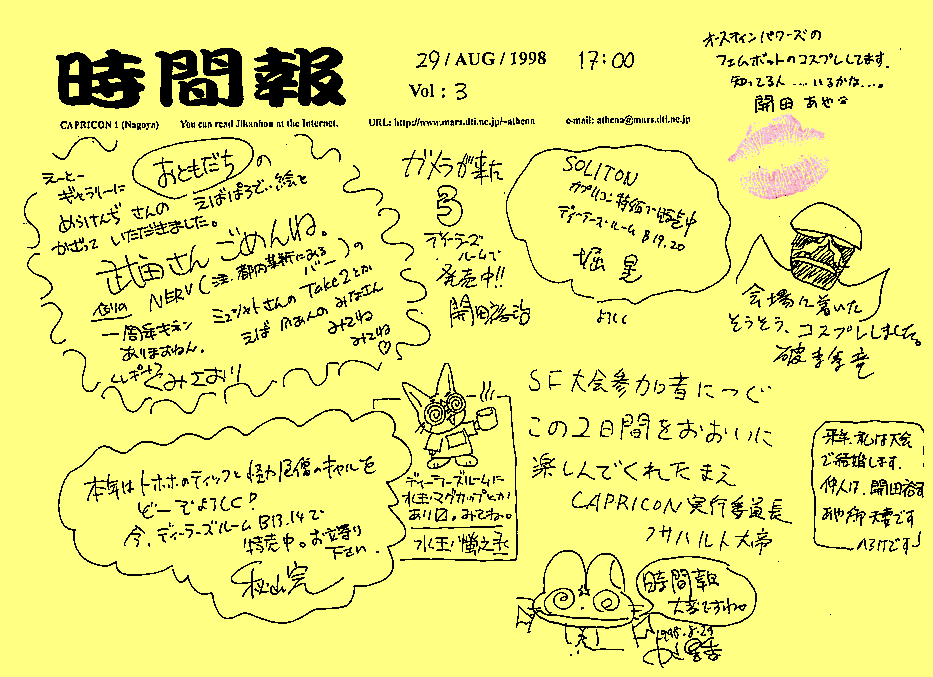 時間報
29/AUG/1998 17:00
Vol : 3
CAPRICON 1 (Nagoya) You can read Jikanhou at the Internet. URL: http://www.mars.dti.ne.jp/~athena e-mail: athena@mars.dti.ne.jp
オースティンパワーズの
フェムボットのコスプレしてます。
知ってるん…いるかな…。
開田 あや
えーとー
おともだちの
ギャラリーに
めらけんぢさんの えばぱろで、絵と
かざって いただきました。
武田さんごめんね。
NERV(注:都内某所にあるバー)の
一周年キネン
ミュシャトさんのTake2とか
ありまおねん。
えば みあんの みなさん
みてね
みてね♡
くみさおり
ガメラが来た
3
ディーラーズ
ルームで
発売中!!
開田裕治
SOLITON
カプリコン特価で発売中
ディーラーズルーム B19.20
堀 晃
よろしく
会場に着いた
そうそう、コスプレしました。
破李拳竜
本年はトホホのティッフと怪力尼僧のキャルを
どーでよろしく!
今、ディーラーズルームB13.14で
特売中。お立寄り
下さい。
秋山完
ディーラーズルームに
水玉・マグカップとか
あり〼。みてね。
水玉 慎之丞
SF大会参加者につぐ
この2日間をおおいに
楽しんでくれたまえ
CAPRICON実行委員長
フサハルト大帝
来年、私は大会
で結婚します。
仲人は、開田裕治
あや御夫妻です
時間報
大変ですねっ
1998.8.29